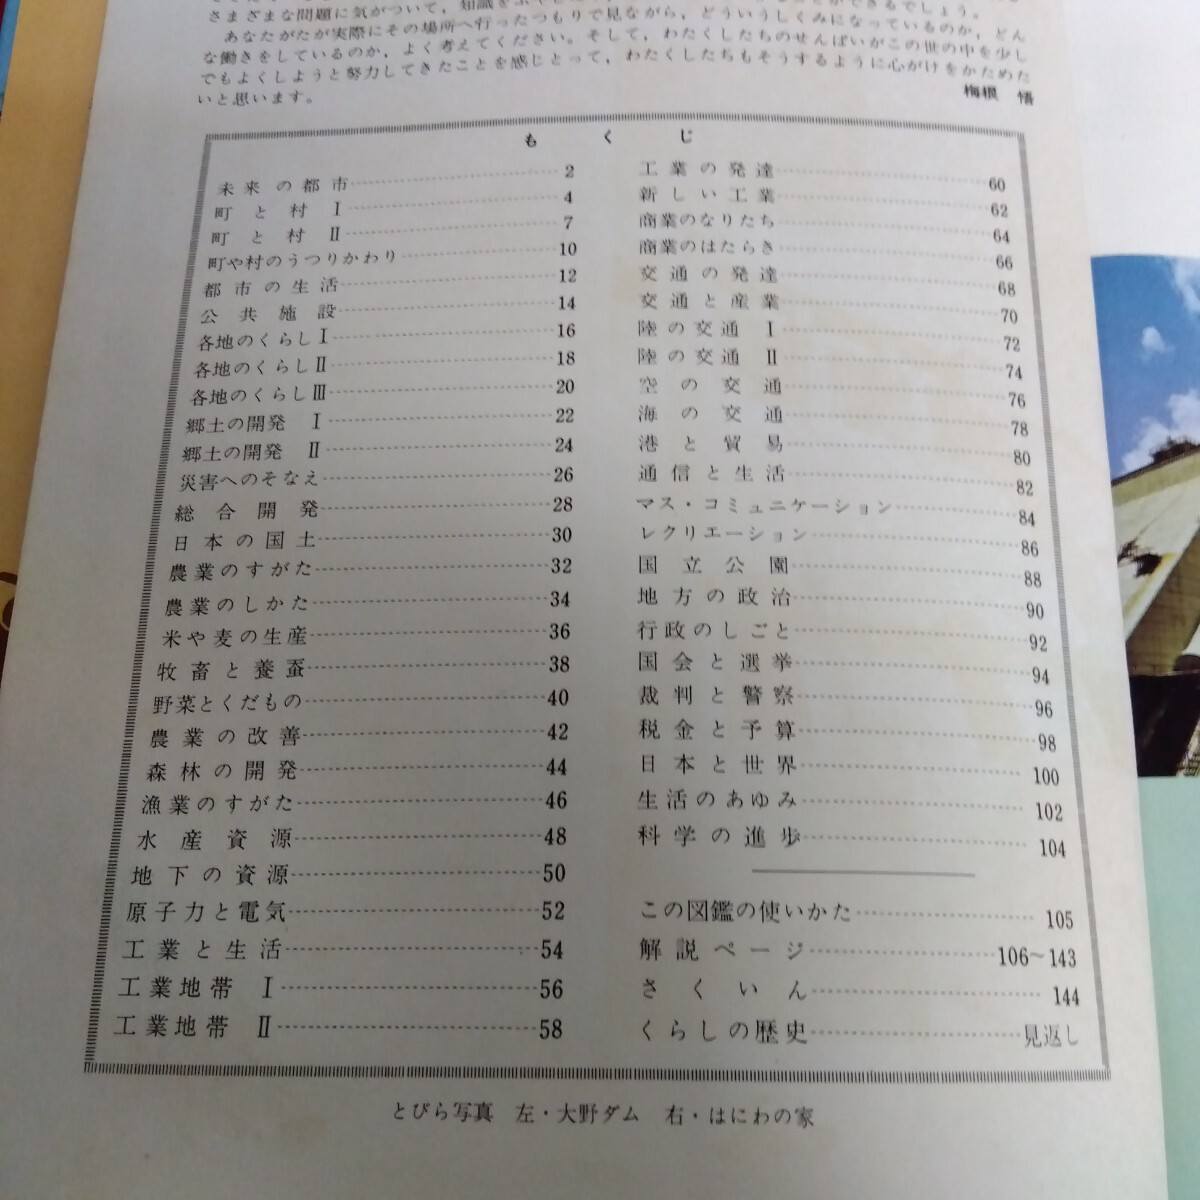 さまざまな問題に気がついて，知識を
あなたがたが実際にその場所へ行ったつもりで見ながら，どういうしくみになっているのか，どん
な働きをしているのか，よく考えてください。そして，わたくしたちのせんぱいがこの世の中を少し
でもよくしようと努力してきたことを感じとって，わたくしたちもそうするように心がけをかためた
いと思います。
梅根 悟
もくじ
未来の都市 2
町と村 Ⅰ 4
町と村 Ⅱ 7
町や村のうつりかわり 10
都市の生活 12
公共施設 14
各地のくらしⅠ 16
各地のくらしⅡ 18
各地のくらしⅢ 20
郷土の開発 Ⅰ 22
郷土の開発 Ⅱ 24
災害へのそなえ 26
総合開発 28
日本の国土 30
農業のすがた 32
農業のしかた 34
米や麦の生産 36
牧畜と養蚕 38
野菜とくだもの 40
農業の改善 42
森林の開発 44
漁業のすがた 46
水産資源 48
地下の資源 50
原子力と電気 52
工業と生活 54
工業地帯 Ⅰ 56
工業地帯 Ⅱ 58
工業の発達 60
新しい工業 62
商業のなりたち 64
商業のはたらき 66
交通の発達 68
交通と産業 70
陸の交通 Ⅰ 72
陸の交通 Ⅱ 74
空の交通 76
海の交通 78
港と貿易 80
通信と生活 82
マス・コミュニケーション 84
レクリエーション 86
国立公園 88
地方の政治 90
行政のしごと 92
国会と選挙 94
裁判と警察 96
税金と予算 98
日本と世界 100
生活のあゆみ 102
科学の進歩 104
この図鑑の使いかた 105
解説ページ 106〜143
さくいん 144
くらしの歴史 見返し
とびら写真 左・大野ダム 右・はにわの家